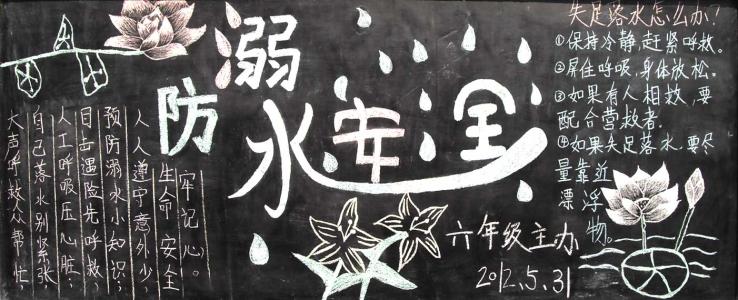 防溺水安全
大声呼救众帮忙
自己落水别紧张
人工呼吸压心脏;
目击遇险先呼救,
预防溺水小知识;
人人遵守意外少,
生命安全
牢记心。
失足落水怎么办?
①保持冷静,赶紧呼救。
②屏住呼吸,身体放松。
③如果有人相救,要
配合营救者.
④如果失足落水,要尽
量靠近
漂浮物。
六年级主办
2012.5.31